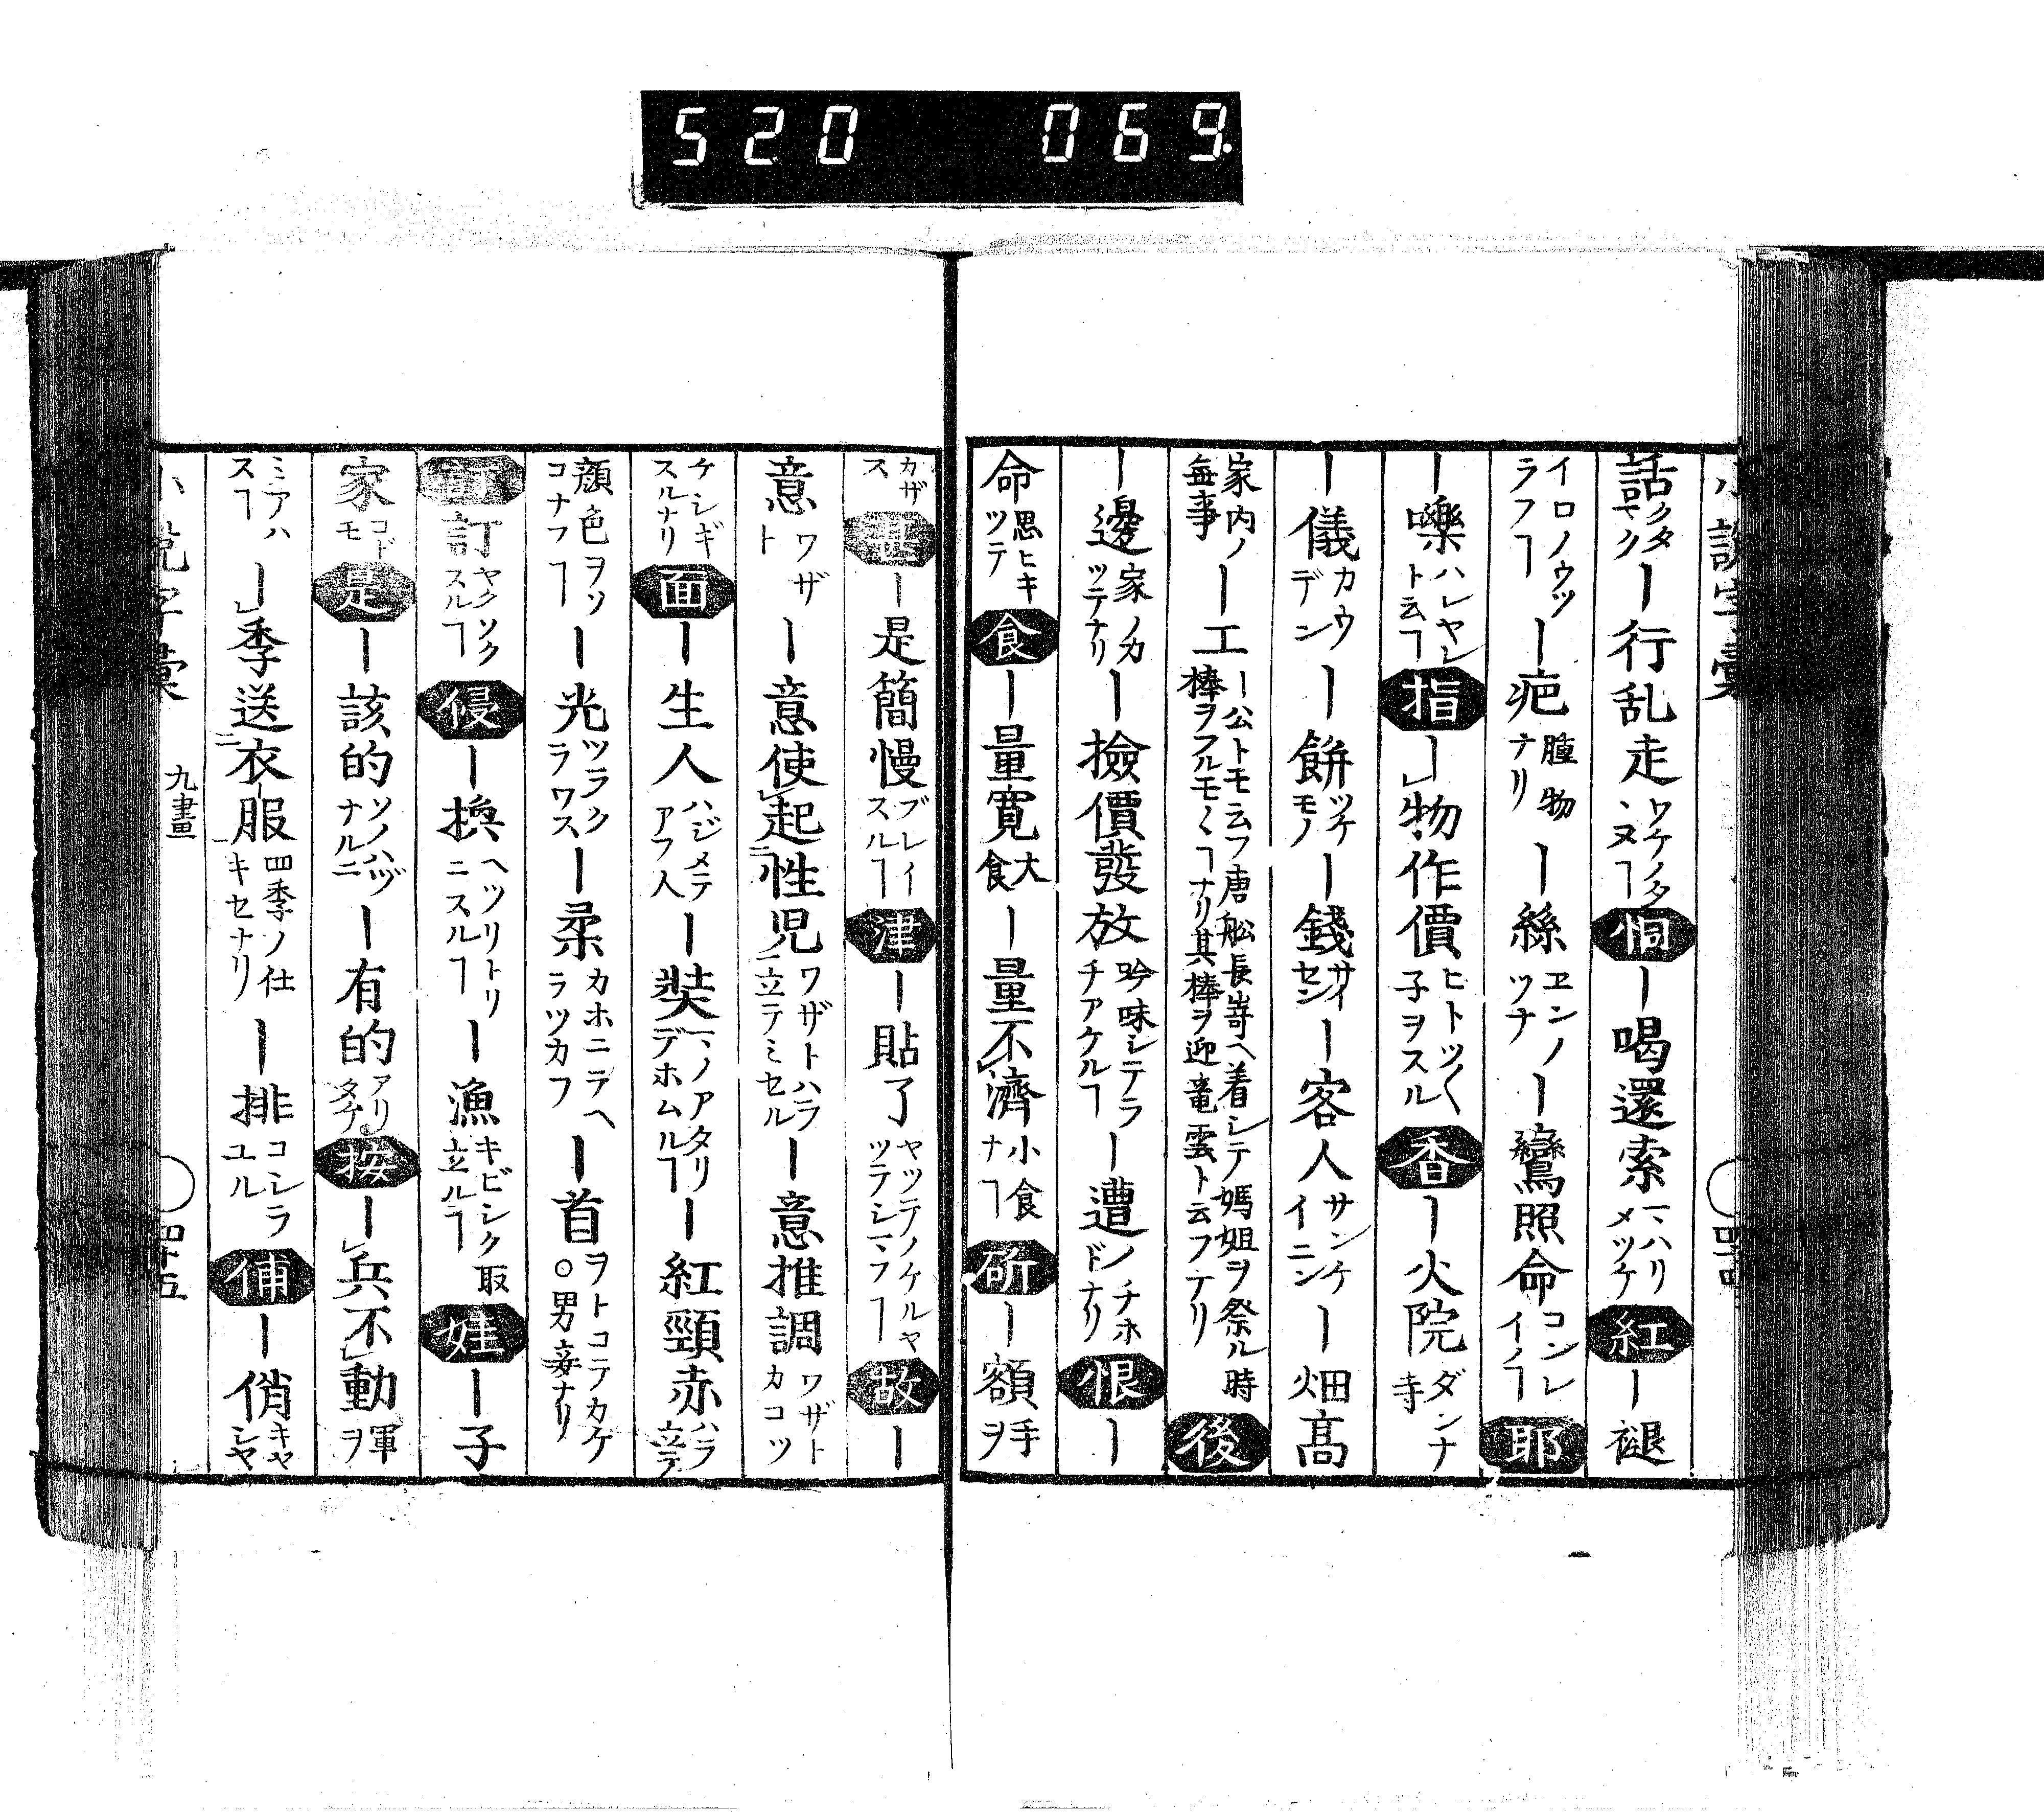 520 069.
話 クダマク ー行乱走 ワケノタヽヌヿ 恫 ー喝還索 ヤハリメツケ 紅 ー褪
イロノウツラフヿ ー疤 腫物ナリ ー絲 ヱンノツナ ー鸞照命 コンレイノヿ 耶
ー嚛 ハレヤレト云ヿ 指 ー物作價 ヒトツ〱子ヲスル 香 ー火院 ダンナ寺
ー儀 カウデン ー餅 ツケモノ ー錢 サイセン ー客人 サンケイニン ー畑高
家内ノ毎事 ー工 ー公トモ云フ唐舩長嵜ヘ着シテノ媽姐ヲ祭ル時棒ヲフルモノヽヿナリ其棒ヲ迎竜雲ト云フナリ 後
ー邊 家ノカツテナリ ー撿價發放 吟味シテラチアケルヿ ー遭 ノチホドナリ 恨 ー
命 思ヒキツテ 食 ー量寛 大食 ー量不濟 小食ナヿ 斫 ー額 手ヲ
小說字彙 四十四
カザス 甚 ー是簡慢 ブレイスルヿ 津 ー貼了 ヤツテノケルヤツテシマフヿ 故 ー
意 ワザト ー意使起性児 ワザトハラ立テミセル ー意推調 ワザトカコツ
ケシギスルナリ 面 ー生人 ハジメテアフ人 ー奘 マノアタリデホムルヿ ー紅頸赤 ハラ立テ
顔色ヲソコナフヿ ー光 ツラクラワス ー柔 カホニテヘラツカフ ー首 ヲトコテカケ○男妾ナリ
訂 ヤクソクスルヿ 侵 ー換 ヘツリトリニスルヿ ー漁 キビシク取立ルヿ 娃 ー子
家 コドモ 是 ー該的 ソノハヅナルニ ー有的 アリタケ 按 ー兵不動 軍ヲ
ミアハスヿ ー季送衣服 四季ノ仕キセナリ ー排 コシラユル 俌 ー俏 キヤシヤ
小說字彙 九畫 四十五